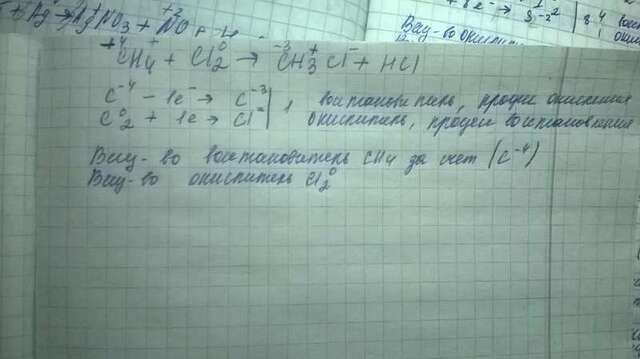 Ag → AgNO3 + NO
CH4 + Cl2 → CH3Cl + HCl
C⁻⁴ − 1e⁻ → C⁻³ | 1 восстановитель, процес окисления
Cl⁰2 + 1e → Cl⁻ | окислитель, процесс восстановления
Вещ-во восстановитель CH4 за счет (C⁻⁴)
Вещ-во окислитель Cl2⁰